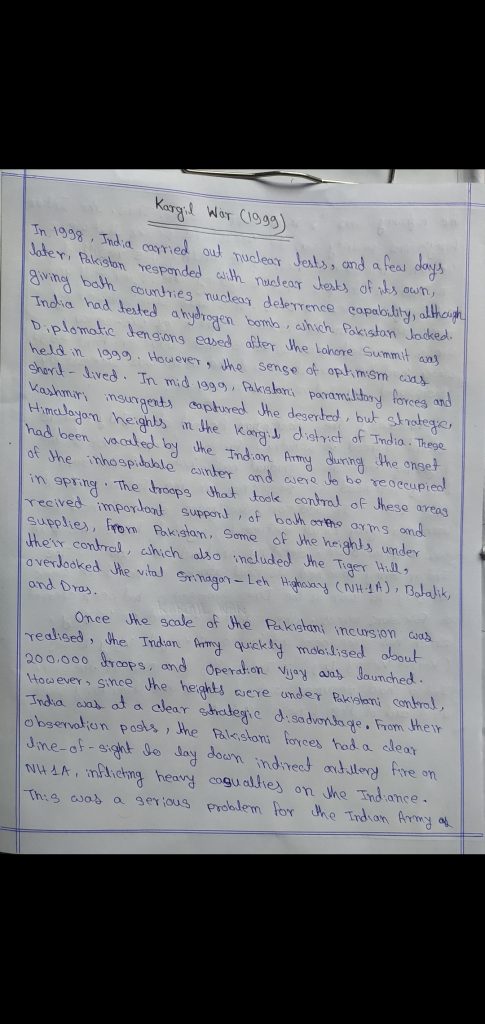 Kargil War (1999)
In 1998, India carried out nuclear tests, and a few days
later, Pakistan responded with nuclear tests of its own,
giving both countries nuclear deterrence capability, although
India had tested a hydrogen bomb, which Pakistan lacked.
Diplomatic tensions eased after the Lahore Summit was
held in 1999. However, the sense of optimism was
short-lived. In mid 1999, Pakistani paramilitary forces and
Kashmiri insurgents captured the deserted, but strategic,
Himalayan heights in the Kargil district of India. These
had been vacated by the Indian Army during the onset
of the inhospitable winter and were to be reoccupied
in spring. The troops that took control of these areas
recived important support, of both arms and
supplies, From Pakistan. Some of the heights under
their control, which also included the Tiger Hill,
overlooked the vital Srinagar-Leh Highway (NH1A), Batalik,
and Dras.
Once the scale of the Pakistani incursion was
realised, the Indian Army quickly mobilised about
200.000 troops, and Operation Vijay was launched.
However, since the heights were under Pakistani control,
India was at a clear strategic disadvantage. From their
observation posts, the Pakistani forces had a clear
line-of-sight to lay down indirect artillery fire on
NH1A, inflicting heavy casualties on the Indiance.
This was a serious problem for the Indian Army as